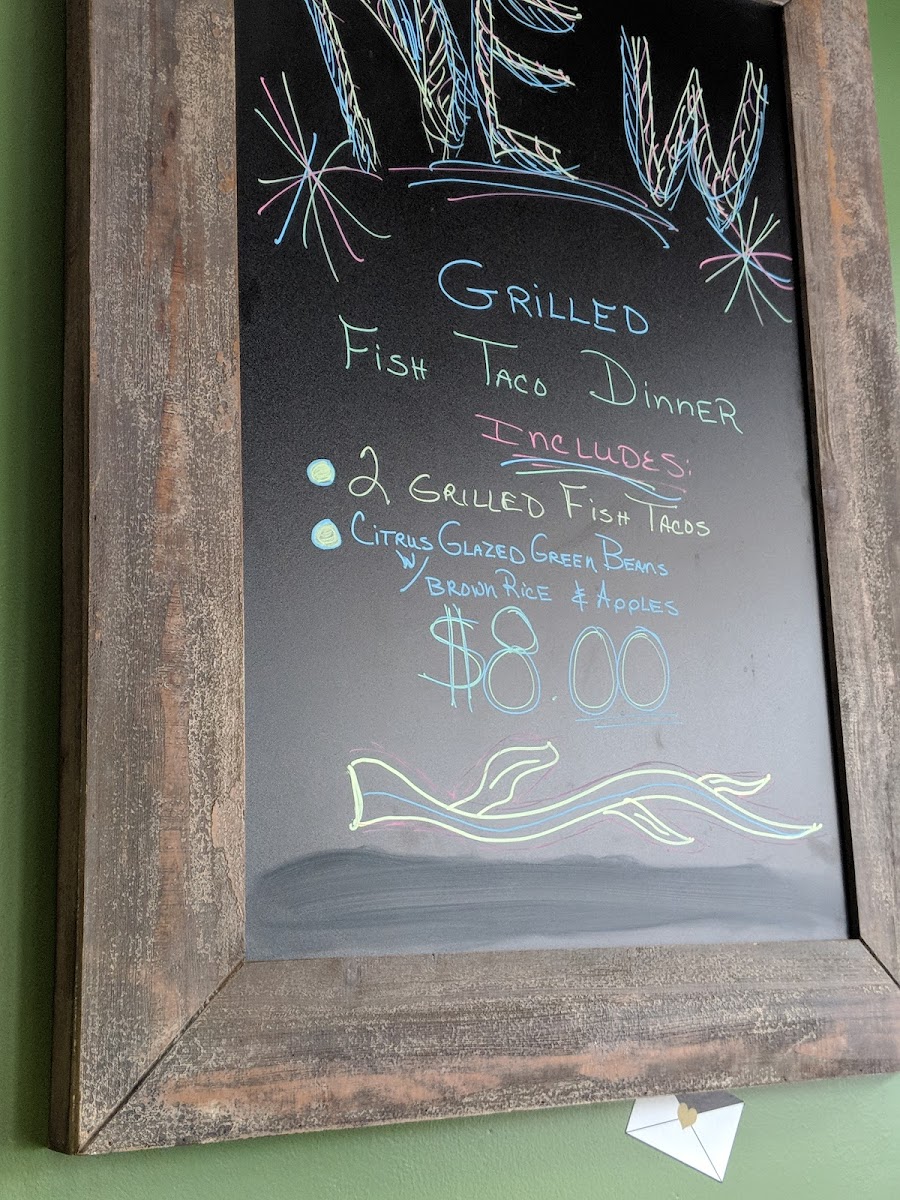 NEW
GRiLLED
FisH TACO DinnER
InCLUDES:
2 GRILLED FisH TACOS
CiTRUS GLAZED GREEN BEANS
W/ BROWN RiCE & APPLES
$8.00